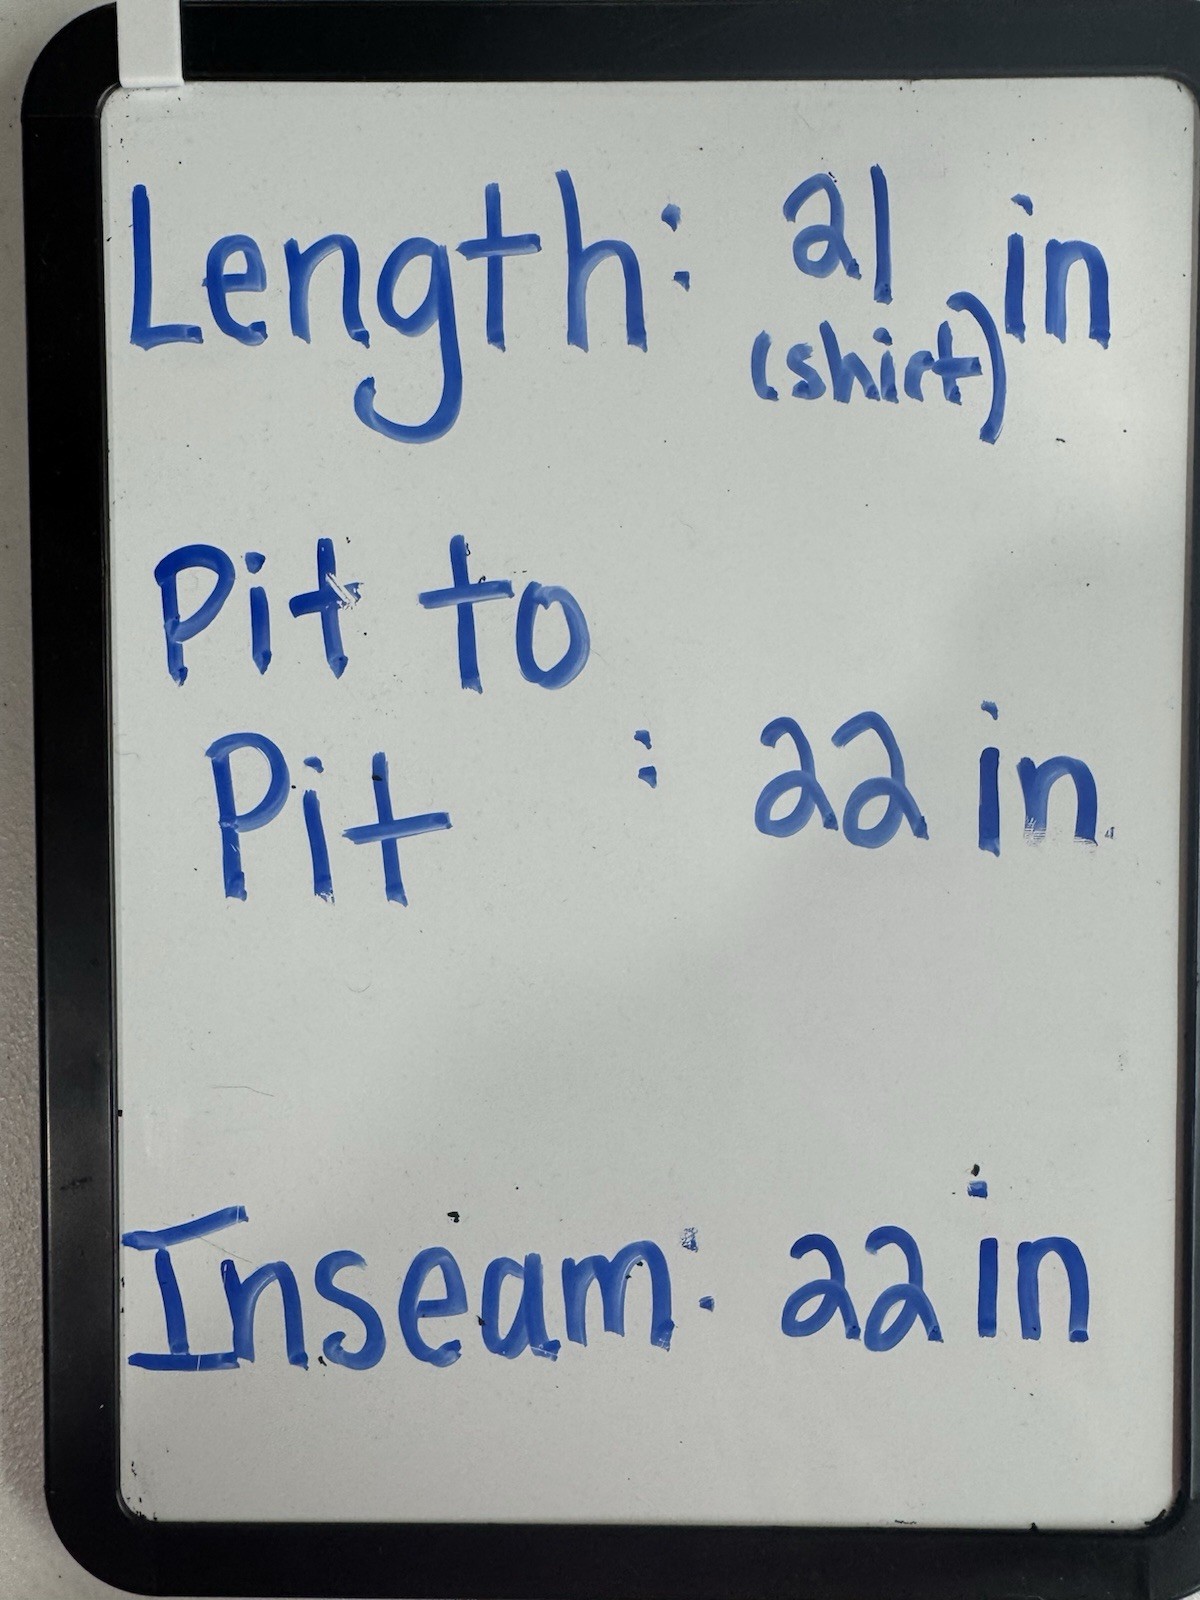 Length: 21 in
(shirt)
Pit to
Pit : 22 in
Inseam: 22 in